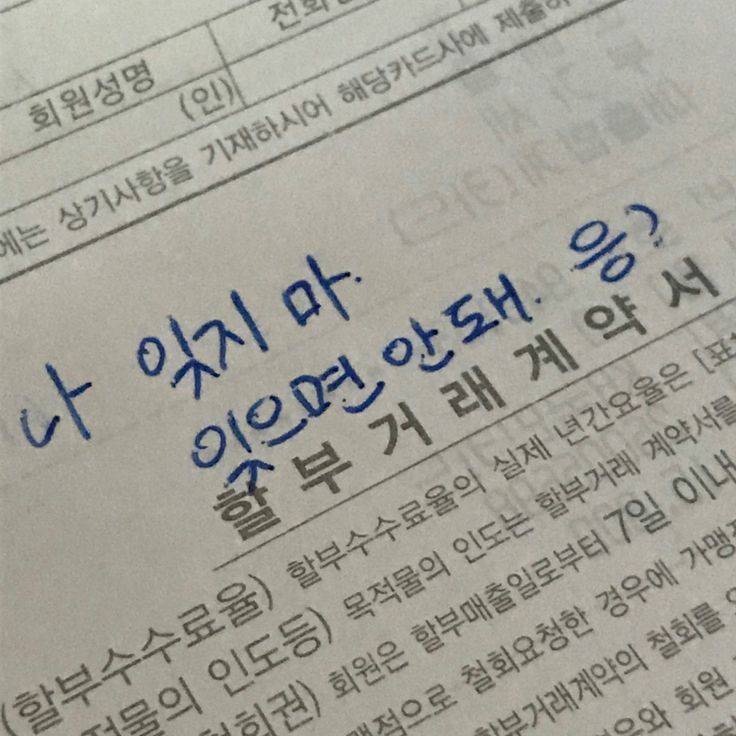 전화
회원성명
(인)
에는 상기사항을 기재하시어 해당카드사에 제출하
나 잊지 마.
잊으면 안돼. 응?
할부거래계약서
(할부수수료율) 할부수수료율의 실제 년간요율은 [표
적물의 인도등) 목적물의 인도는 할부거래 계약서를
철회권) 회원은 할부매출일로부터 7일 이내
맹점으로 철회요청한 경우에 가맹
할부거래계약의 철회를
경우와 회원